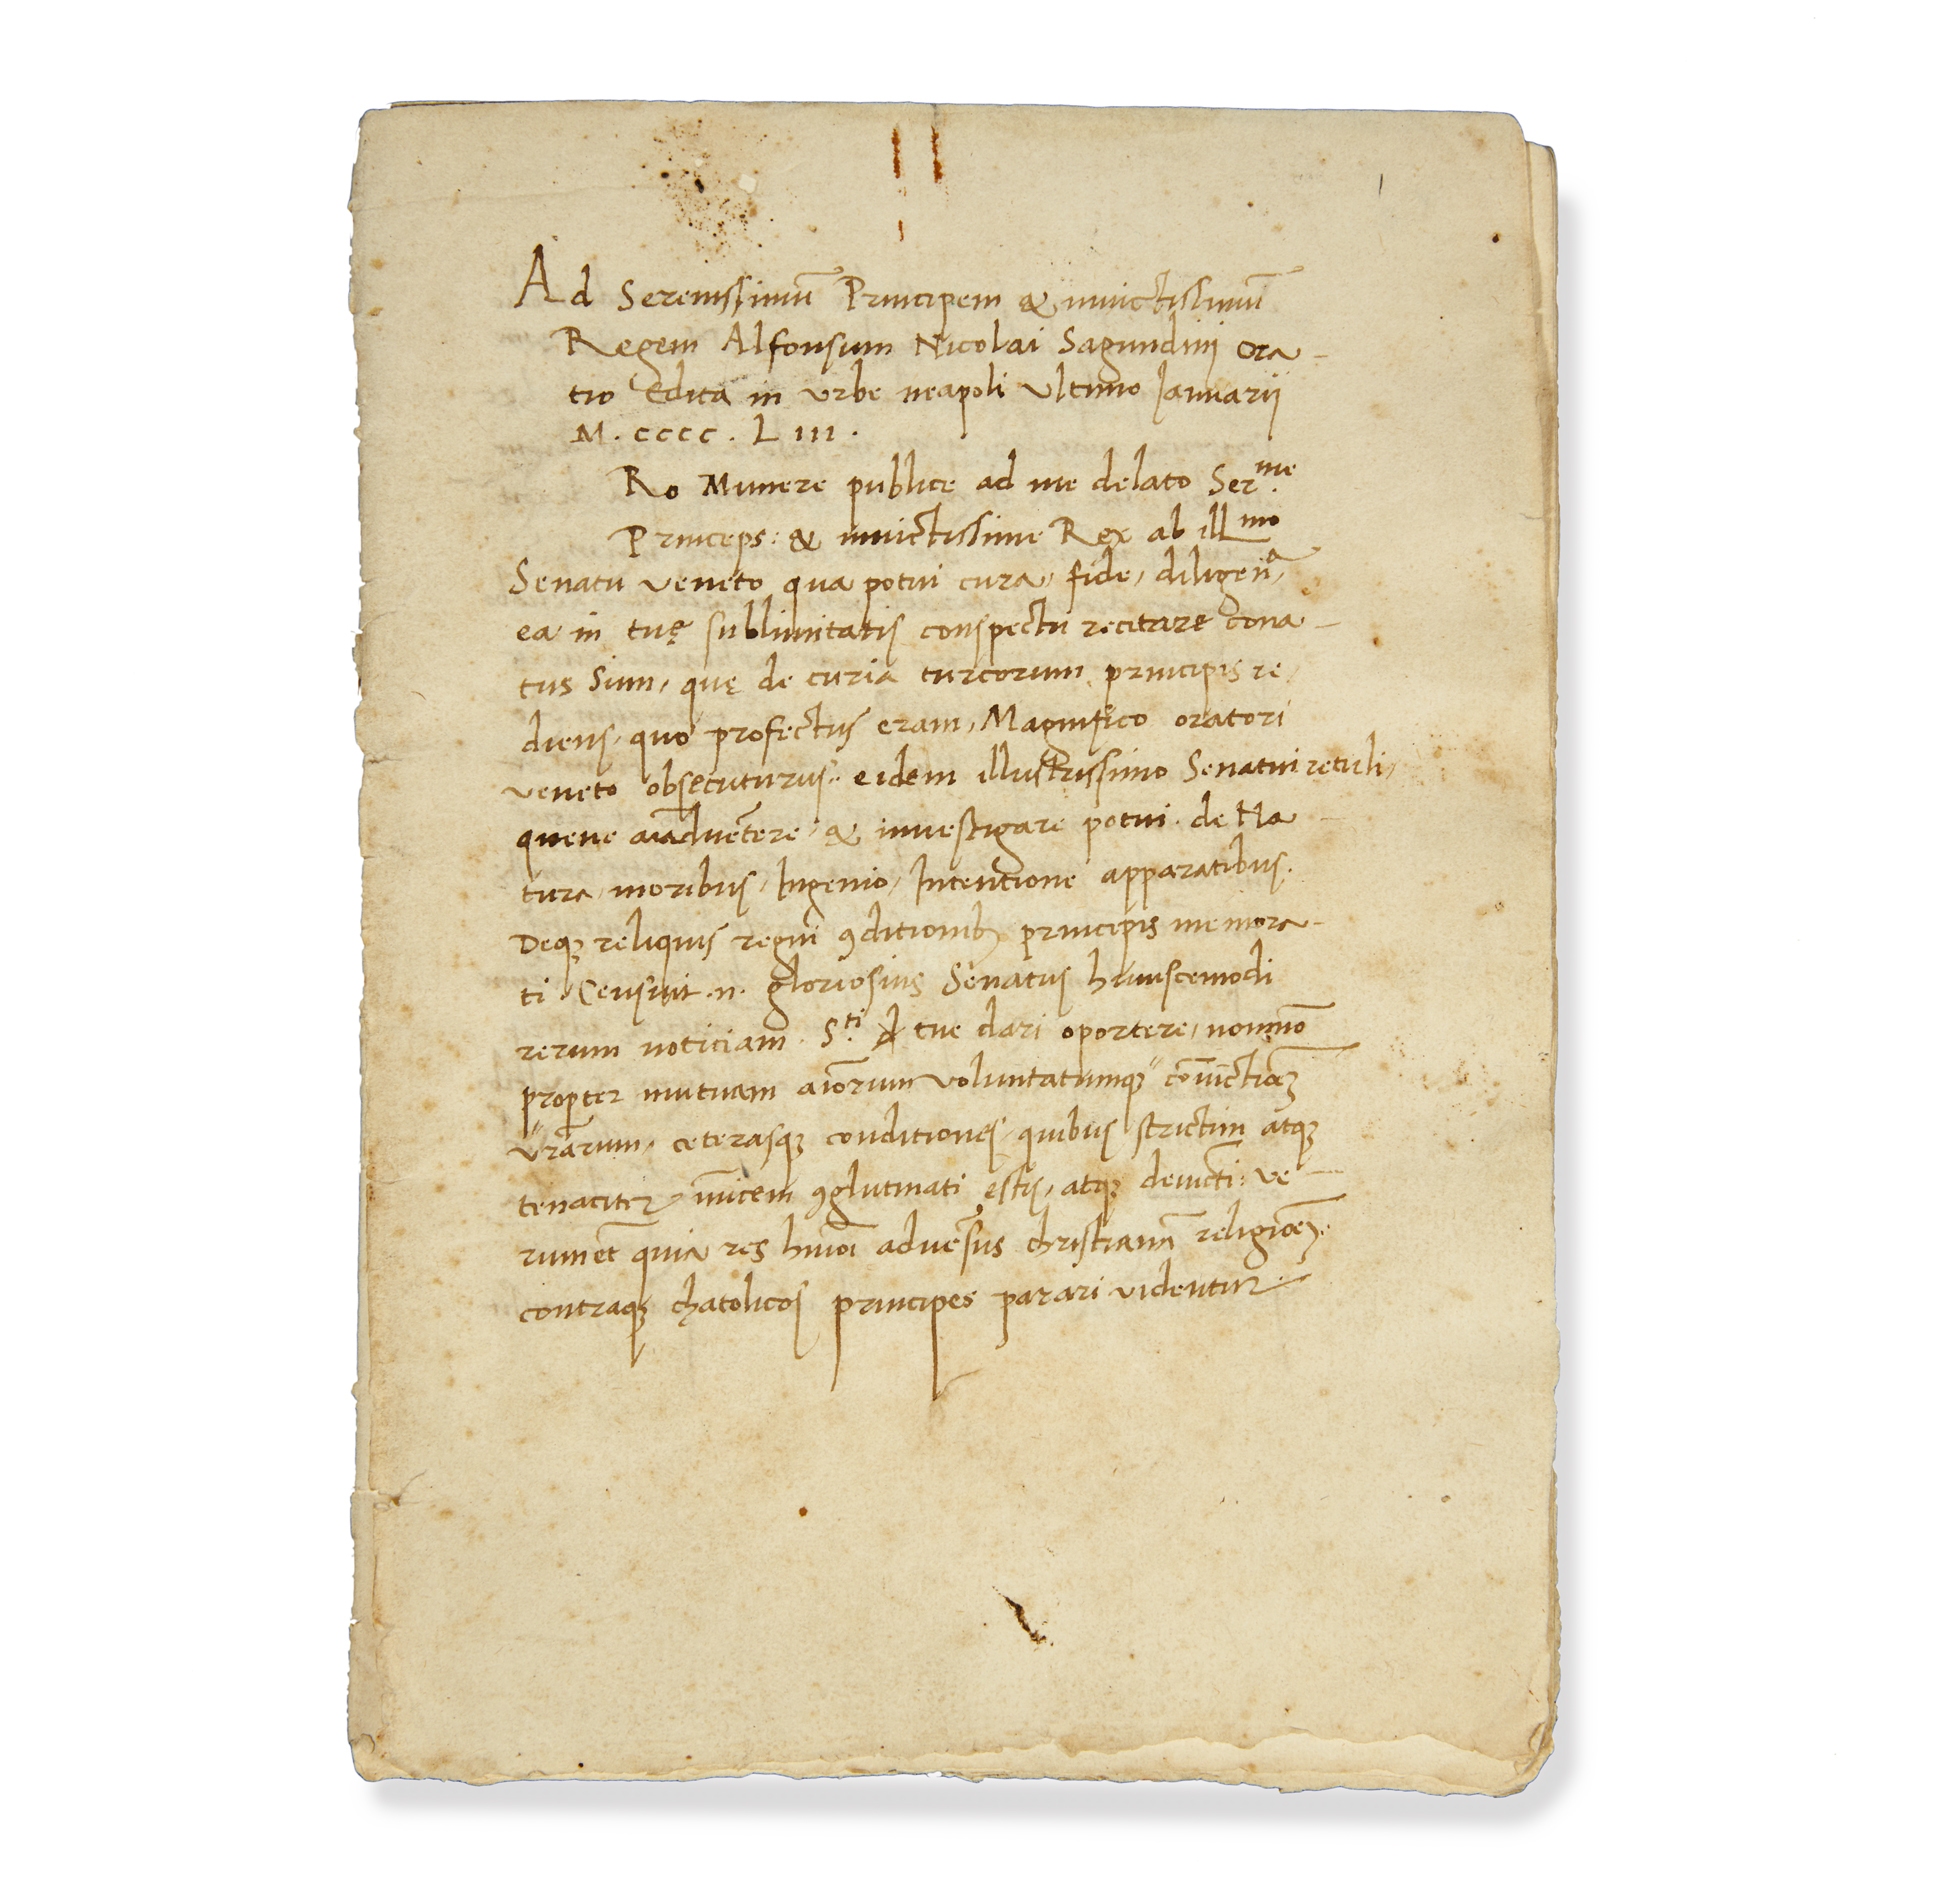 Ad Serenissimū Principem & inuictissimū
Regem Alfonsum Nicolai Sagundini Ora
tio Edita in urbe neapoli Ultimo Januarii
M. cccc. L iii.
Ro Munere publice ad me delato Ser.me
Princeps: & inuictissime Rex ab illmo
Senatu veneto qua potui cura, fide, diligen̄a,
ea in tuę sublimitatis conspectu recitare cona
tus Sum, quę de curia turcorum principis re
diens, quo profectus eram, Magnifico oratori
veneto obsecuturus. eidem illustrissimo Senatui retuli,
queue aīaduertere, & inuestigare potui. de Na
tura, moribus, Ingenio, Intentione apparatibus.
Deqꝫ reliquis regni ꝯditionibꝫ principis memora
ti. Censuit .n. gloriosius Senatus huiuscemodi
rerum noticiam. S.ti tue dari oportere, nonmō
propter mutuam aīorum voluntatumqꝫ cōiūctiōeꝫ
vrārum, ceterasqꝫ conditiones, quibus strictim atqꝫ
tenaciter inuicem ꝯglutinati estis, atqꝫ deuicti: ve
rumet̄ quia res huiōi aduersus christianā religiōeꝫ.
contraqꝫ chatolicos principes parari videntur.